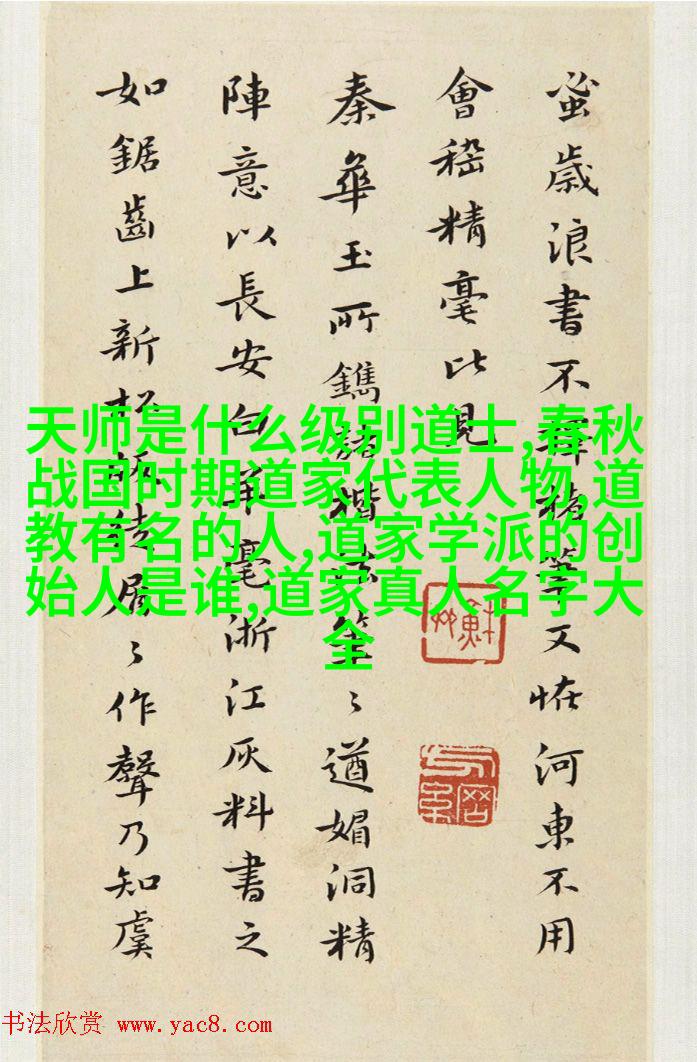 蚤歲浪書不擇筆又恠河東不用
會稽精毫此見
秦華玉所鐫諸楷法筆〻遒媚洞精
陣意以長安白羊毫浙江灰料書之
如鋸齒上新松板徒屑〻作聲乃知虞
天师是什么级别道士,春秋
战国时期道家代表人物,道
教有名的人,道家学派的创
始人是谁,道家真人名字大
全
书法欣赏 www.yac8.com